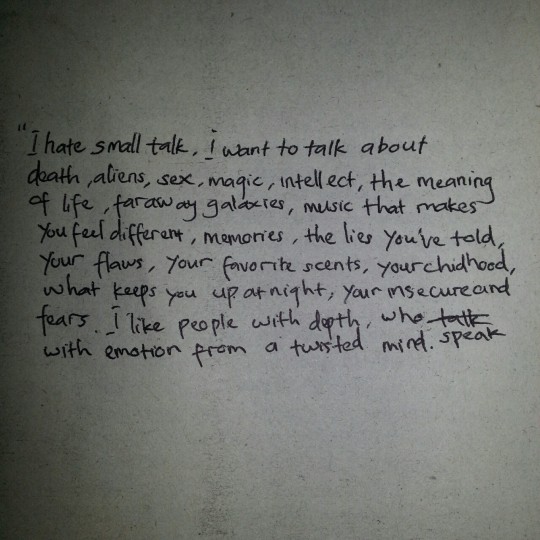 "I hate small talk. I want to talk about
death, aliens, sex, magic, intellect, the meaning
of life, faraway galaxies, music that makes
you feel different, memories, the lies you've told,
your flaws, your favorite scents, your chidhood,
what keeps you up at night, your insecure and
fears. I like people with depth, who talk
with emotion from a twisted mind. speak